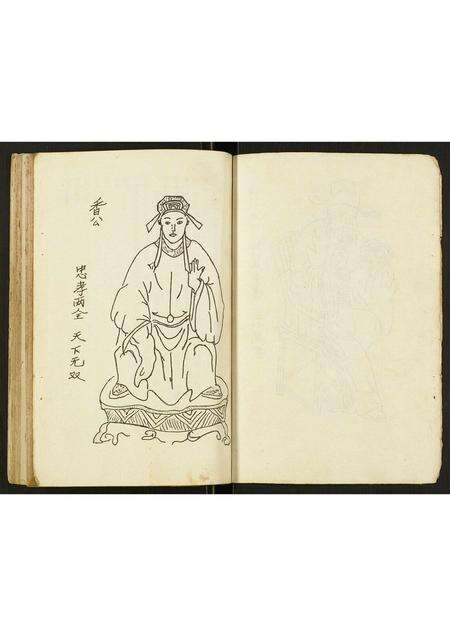 香公
忠孝两全 天下无双